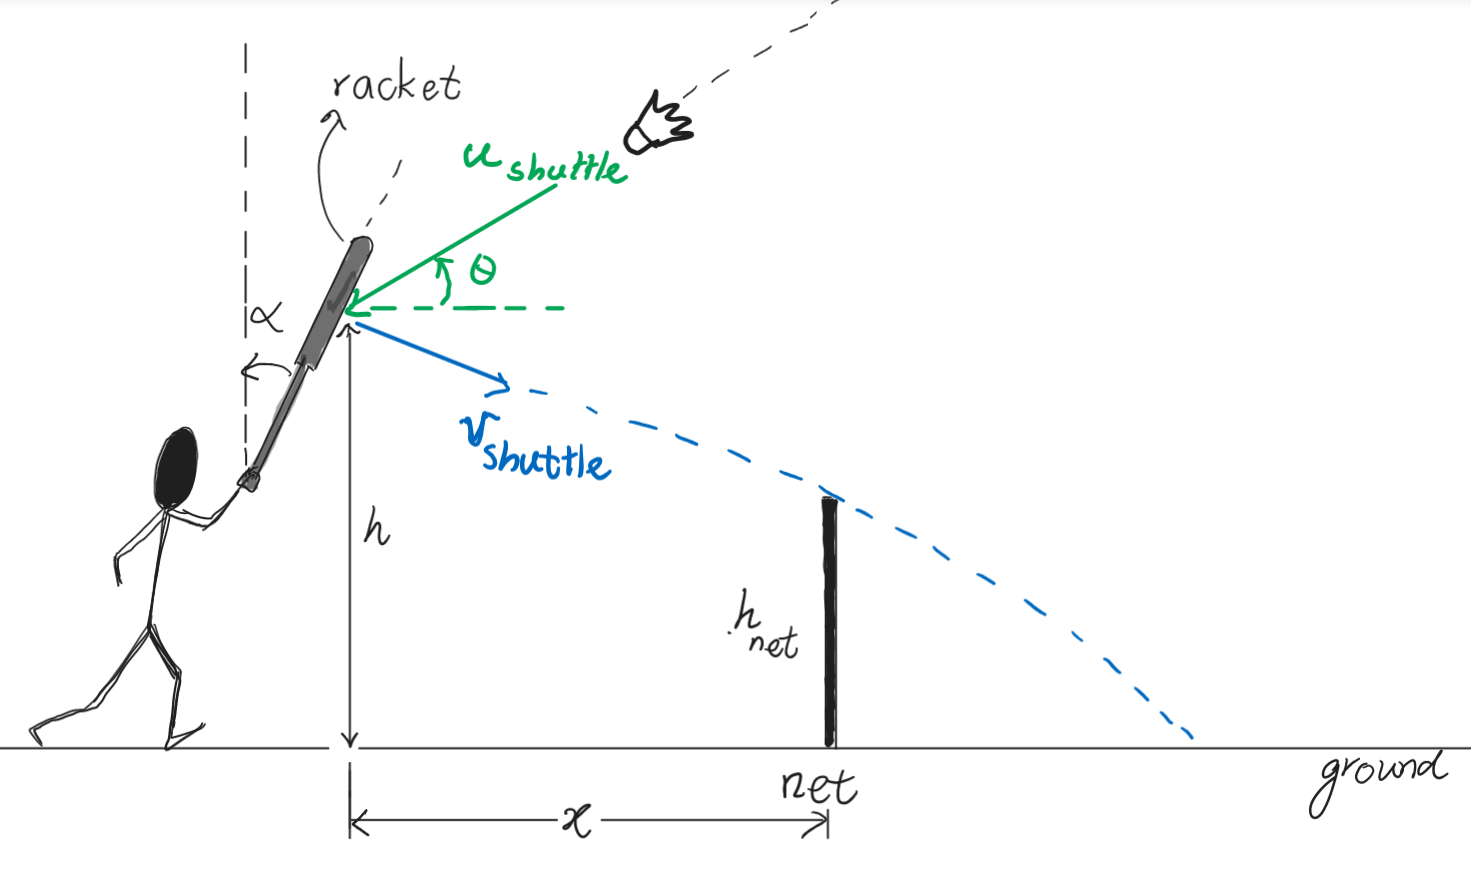 racket
u shuttle
θ
α
v shuttle
h
h net
net
ground
x